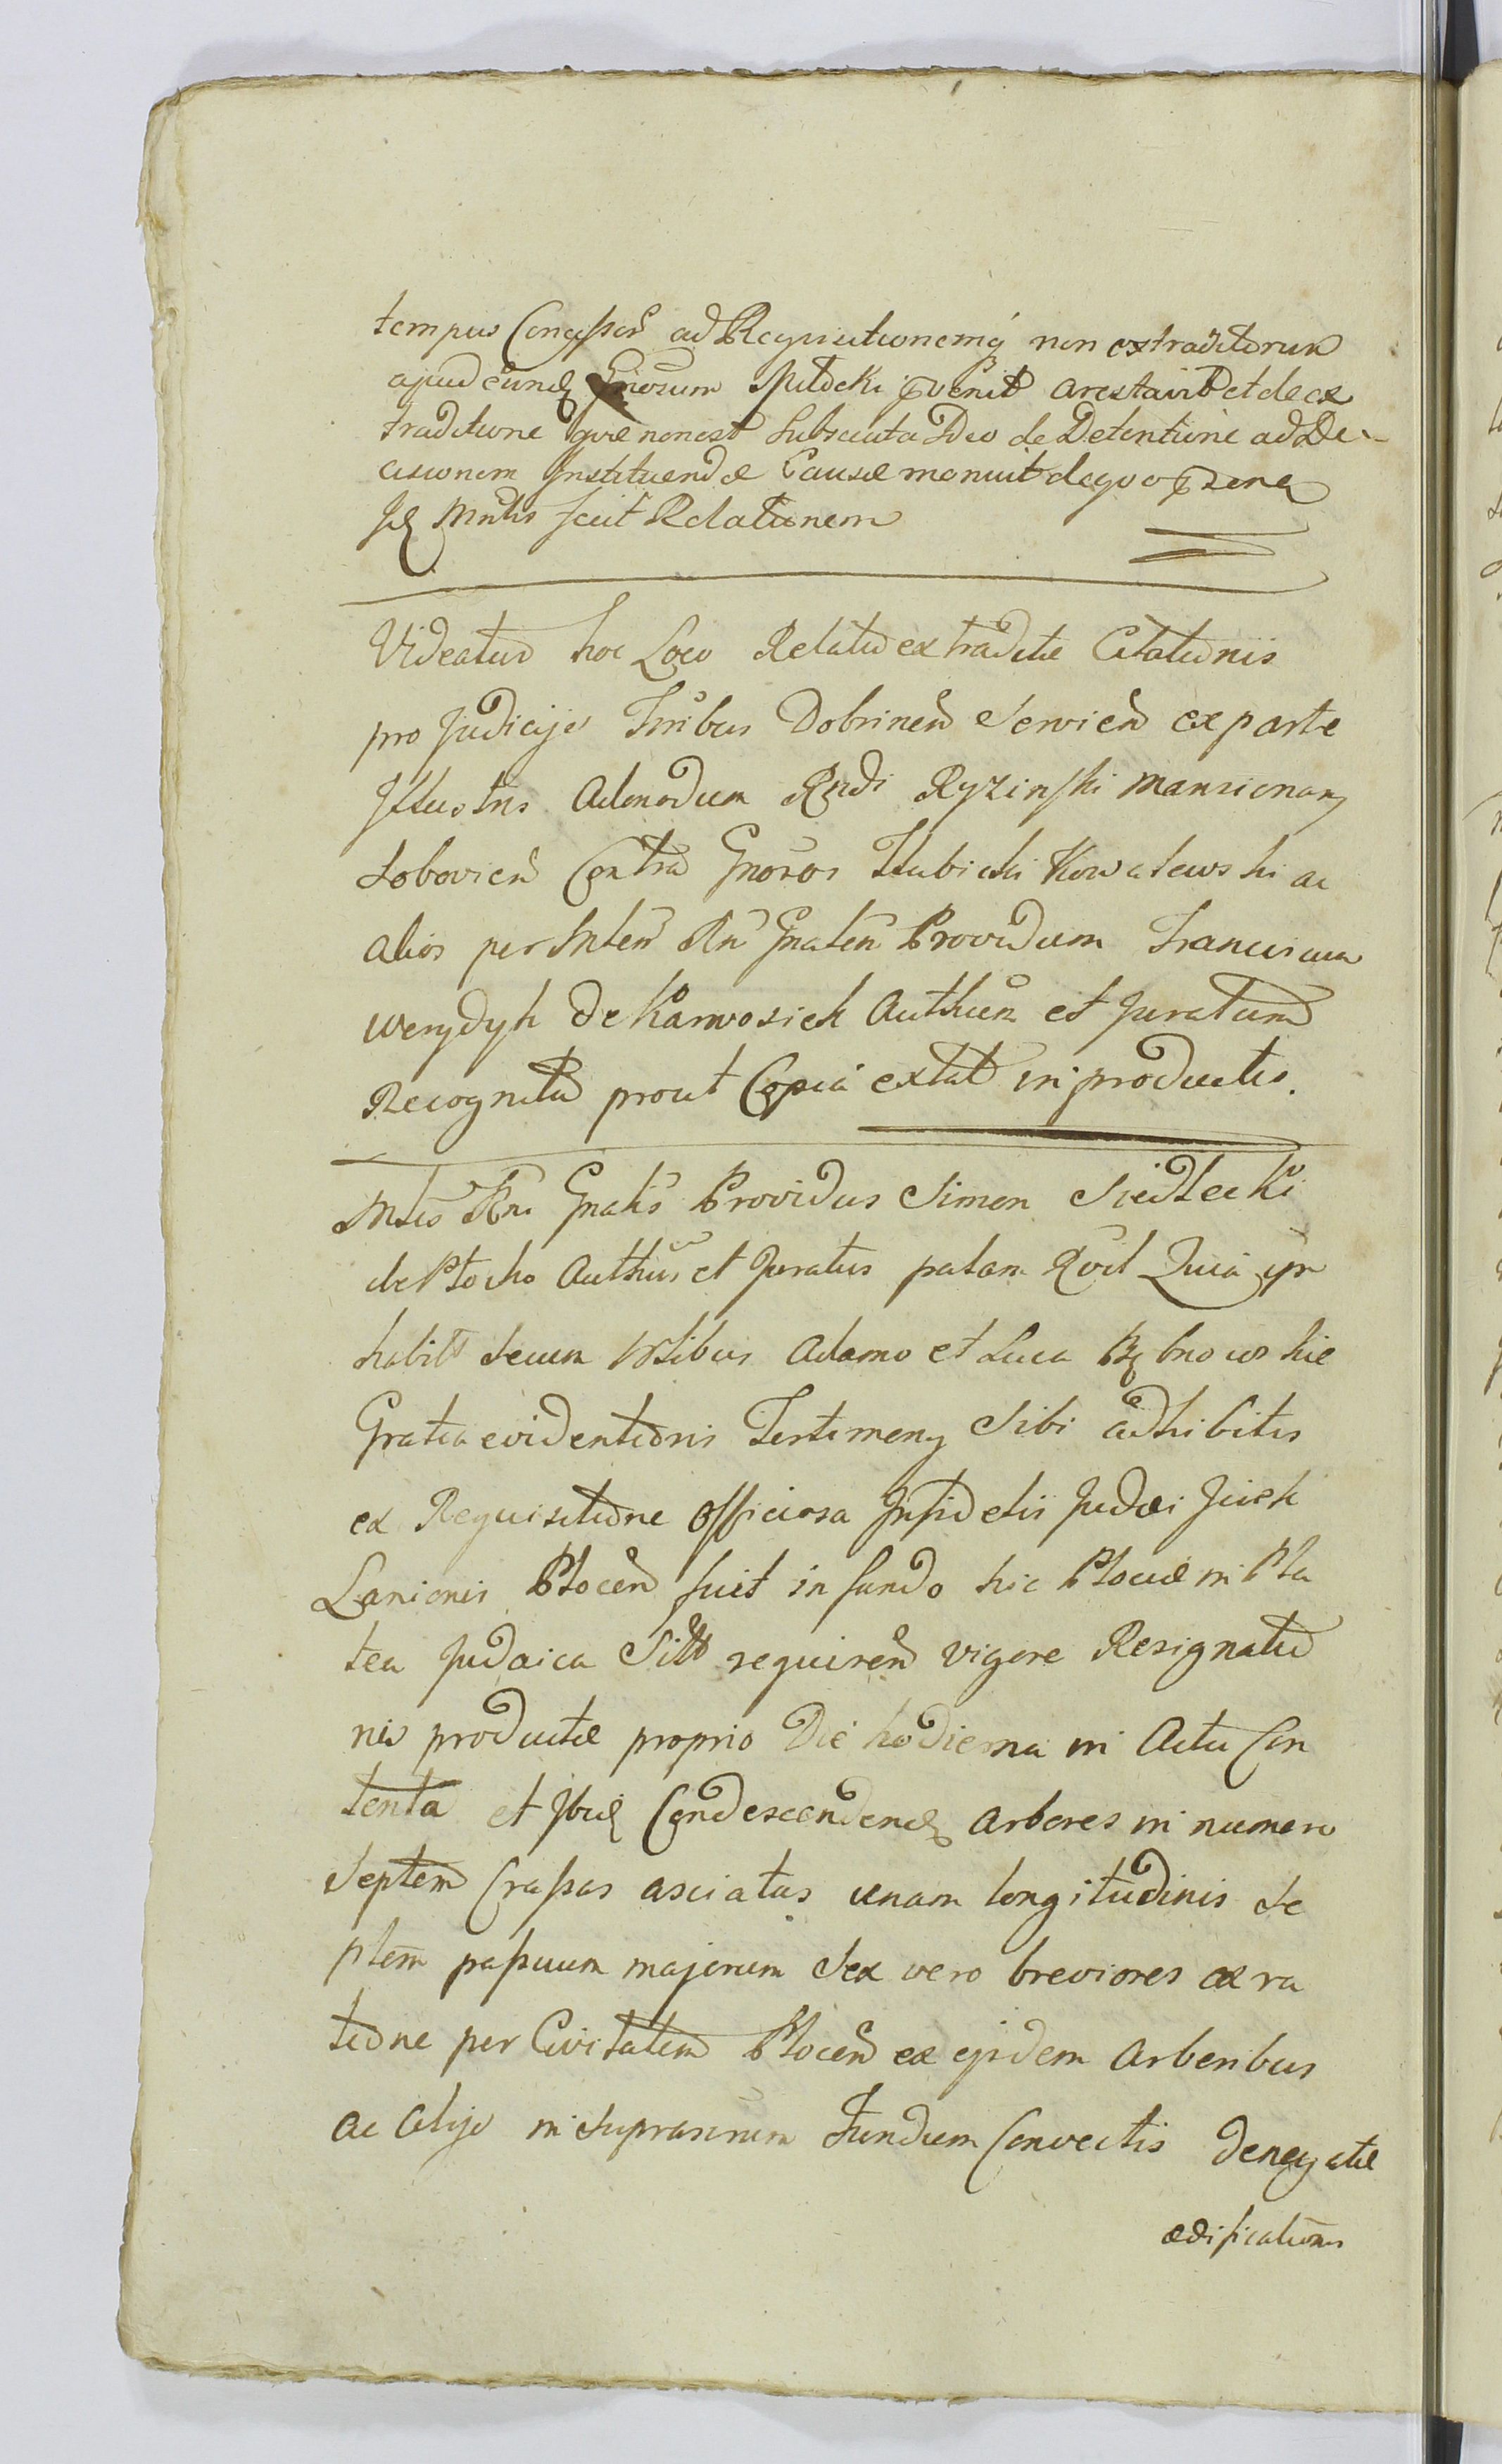 tempus Concessor ad Requisitionemq non extraditorum
apud eund Gnosum Spilocki pvenit arestavit et de ex
traditione quæ non est Subsecuta Deo de Detentione ad De-
cisionem Instituendæ Causæ monuit de quo
Mntlis fecit Relationem
Videatur hoc Loco Relatio extraditæ Citationis
pro Judicijs Trribus Dobrinen Servien ex parte
Illustris Admodum Rndi Ryzinski Mansionarij
Lobovien Contra Gnosos Hubicki Kowalewski ac
alios per Mntlem Rn Gnalem Providum Franciscum
werydyk de Karwosiek Authum et Juratum
Recognita prout Copia extat in productis.
Mntlis Rni Gnalis Providus Simon Siedlecki
de Plocko Authus et Juratus palam Rvit Quia ipse
habitis secum Nblibus Adamo et Luca Rębnowskie
Gratia evidentioris Testimony Sibi adhibitis
ex Requisitione officiosa Infidelis Judæi Jciek
Lanionis Plocen fuit in fundo hic Plociæ in Pla
tea Judaica Sitto requiren vigore Resignatio
nis productæ proprio Die hodierna in Actu Con
tenta et Ibid Condescenden arbores in numero
Septem Crassas asciatas unam longitudinis Se
ptem passuum majorum Sex vero breviores ex ra
tione per Civitatem Plocen ex ejsdem Arboribus
ac alijs in suprascrum Fundum Convectis denegatæ
ædificationis